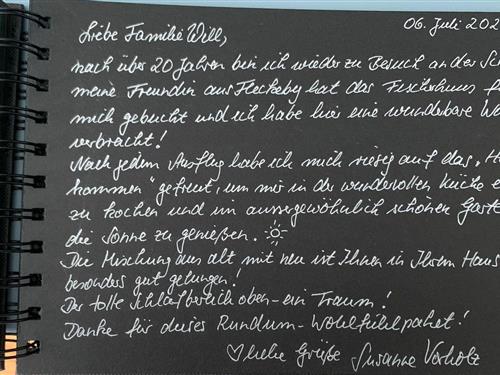 06. Juli 202
Liebe Familie Will,
nach über 20 Jahren bin ich wieder zu Besuch an der Sch
meine Freundin aus Fleckeby hat das Fischerhaus f
mich gebucht und ich habe hier eine wunderbare Wo
verbracht!
Nach jedem Ausflug habe ich mich riesig auf das „H
kommen" gefreut, um mir in der wundervollen Küche e
zu kochen und im aussergewöhnlich schönen Gart
die Sonne zu genießen.
Die Mischung aus alt mit neu ist Ihnen in Ihrem Haus
besonders gut gelungen!
Der tolle Schlafbereich oben - ein Traum!
Danke für dieses Rundum-Wohlfühlpaket!
liebe Grüße Susanne Vorholz